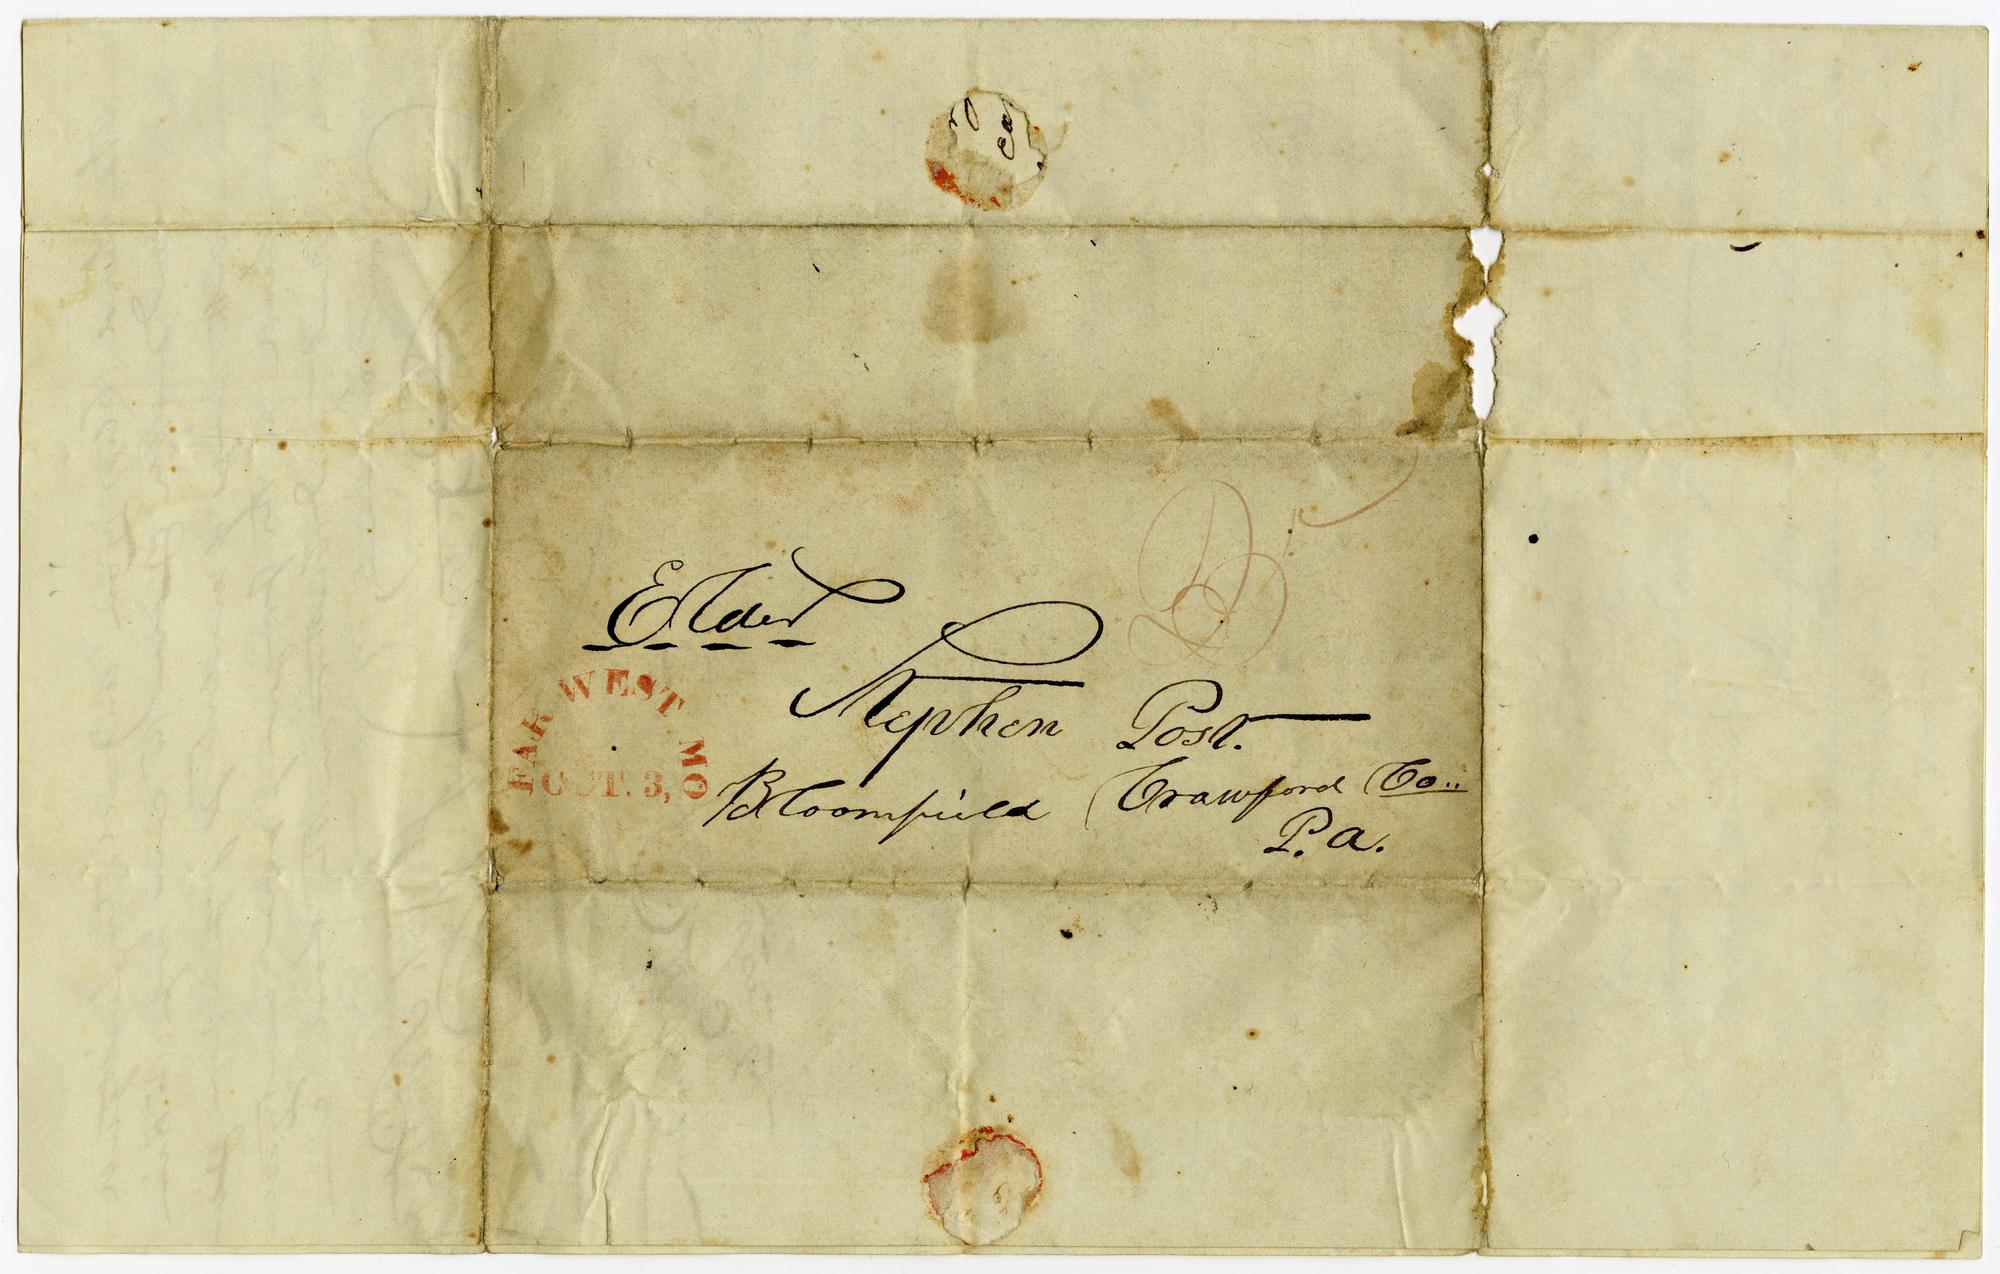 Elder
Stephen Post.
Bloomfield Crawford Co..
P.a.
FAR WEST MO
OCT. 3,